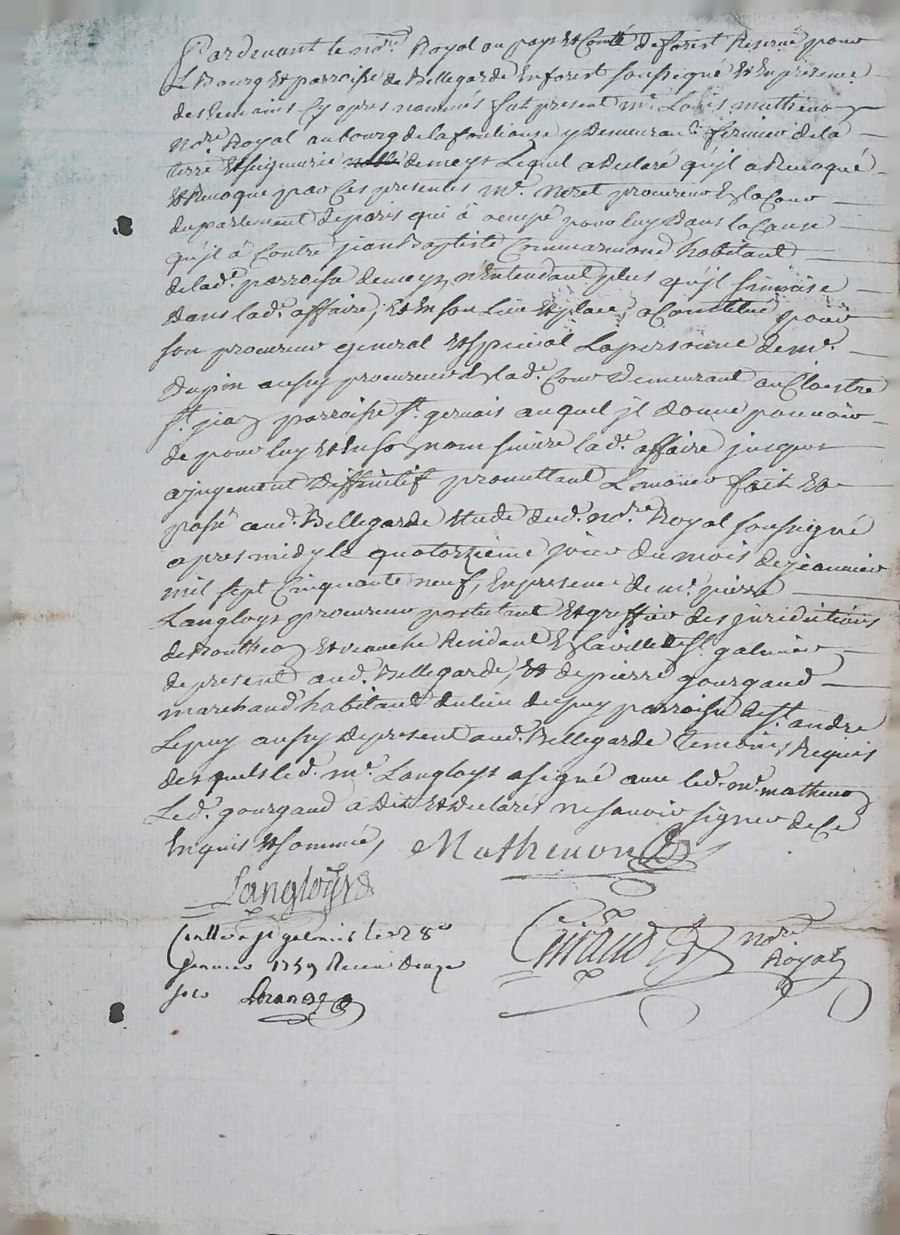 Pardevant le no.re Royal au pays et Comté de forest Reservé pour
Le Bourg et parroisse de Bellegarde en forest soussigné et en presence
des temoins cy apres nommés fut present m.e Louis mathevon
no.re Royal au bourg de la fouliouse y demeurant fermier de la
terre et seigneurie de meys Lequel a declaré qu'jl a Revoqué
et Revoque par Ces presentes m.e procureur en la Cour
du parlement de paris qui à pour luy dans la Cause
qu'jl à Contre jean Baptiste Commarmond habitant
de lad.e parroisse de meys n'entendant plus qu'jl
dans lad.e affaire, et en son lieu et place, a Constitué pour
son procureur general et special La personne de m.e
Dupin aussy procureur en lad.e Cour demeurant au Cloistre
s.t jean parroisse s.t gervais auquel jl donne pouvoir
de pour luy et en son nom suivre lad.e affaire jusques
a jugement diffinitif promettant L'avouer fait et
passé aud. Bellegarde etude dud. no.re Royal soussigné
apres midy le quatorzieme jour du mois de jeanvier
mil sept Cinquante neuf, en presence de m.e pierre
Langloys procureur postulant et greffier des juridictions
de Bouthéon et veauche Residant en la ville de s.t galmier
de present aud. Bellegarde, et de pierre gourgaud
marchand habitant du lieu du puy parroisse de s.t andre
Le puy aussy de present aud. Bellegarde temoins Requis
des quels led. m.e Langloys a signé avec led. m.e mathevon
Led. gourgaud a dit et declaré ne savoir signer de Ce
enquis et sommé,
Mathevon
Langloys
Contlé a st galmier le 28
janvier 1759 Receu douze
sols
no.re
Royal